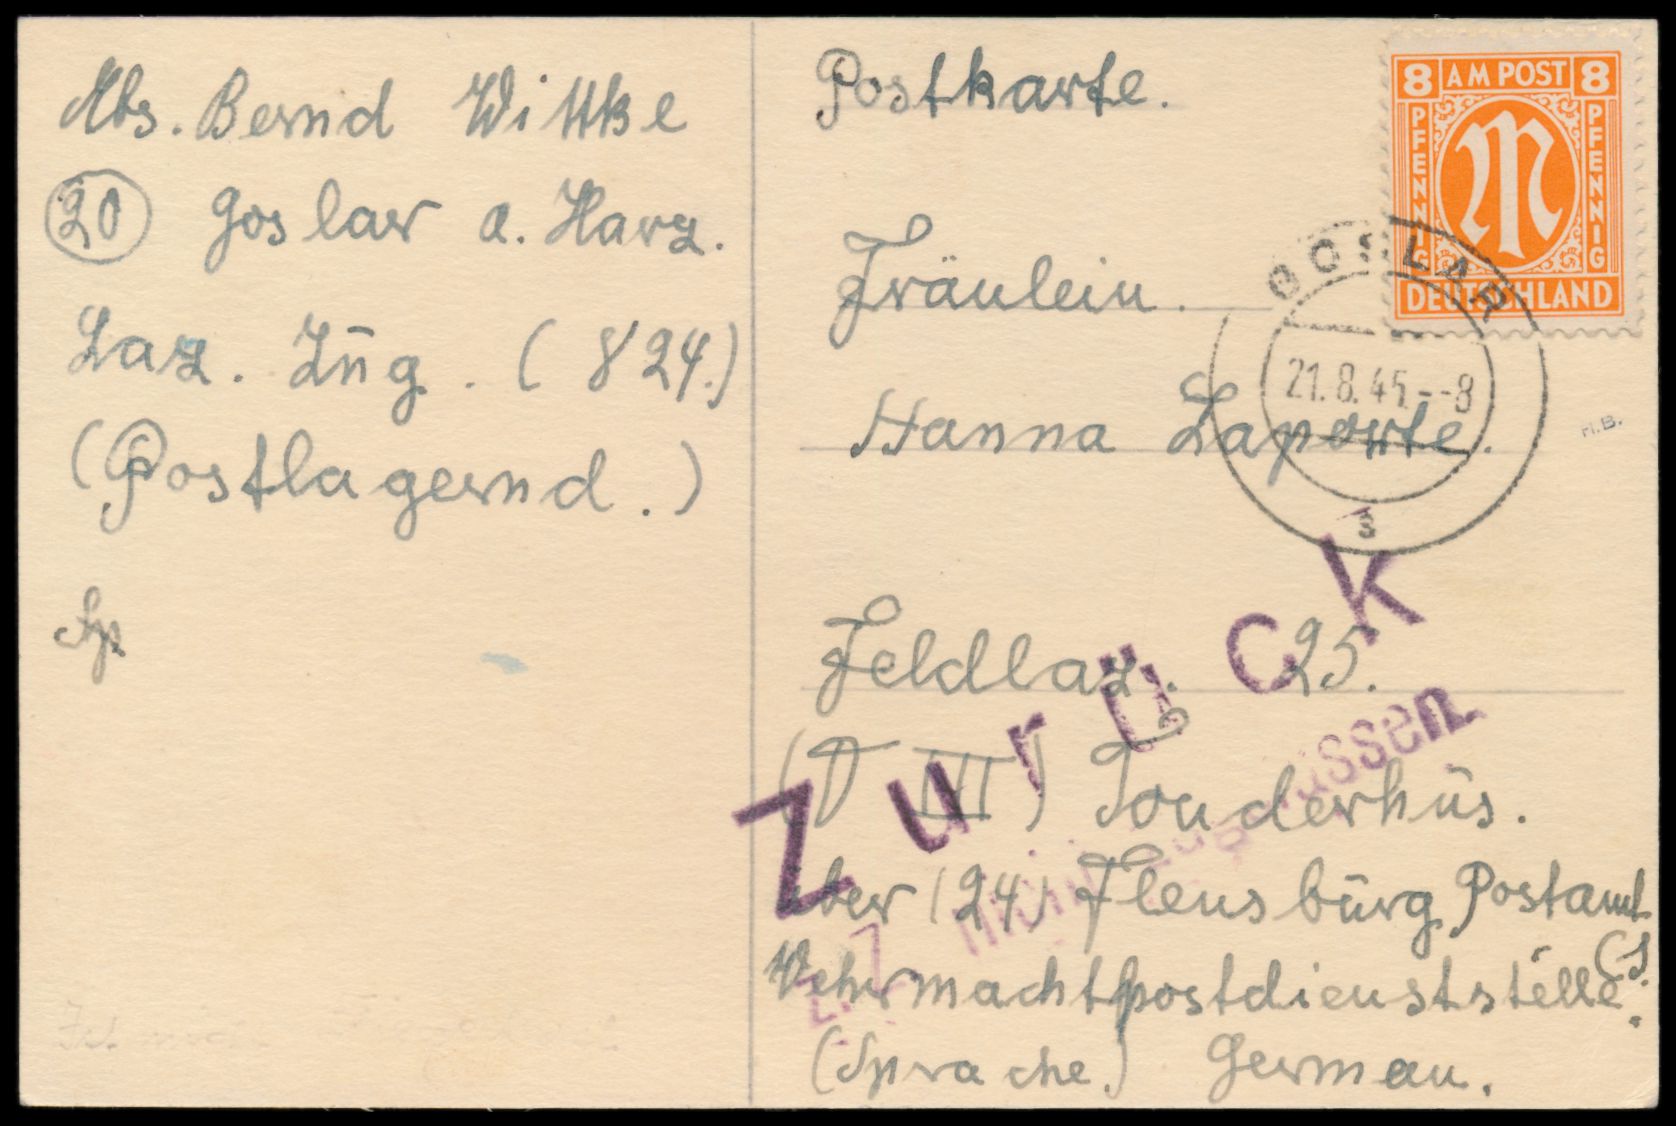 Abs. Bernd Wittke
(20) Goslar a. Harz.
Laz. Zūg. (824.)
(Postlagernd.)
Postkarte.
8 AM POST 8
PFENNIG PFENNIG
M
DEUTSCHLAND
GOSLAR
21.8.45.--8
s
H.B.
Fräulein.
Hanna Laporte.
Feldlaz. 25.
(D III) Sonderhūs.
über (24) Flensbūrg Postamt
Wehrmachtpostdienststelle (S).
(Sprache.) German.
Zurück
z. Z. nicht zugelassen.